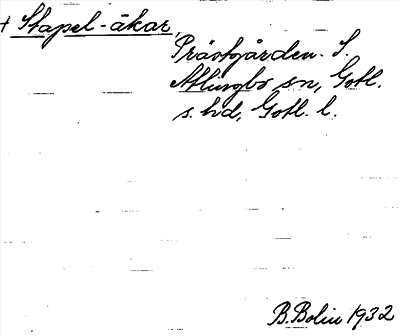 + Stapel-åkar,
Prästgården. S.
Atlingbo sn, Gotl.
s. hd, Gotl. l.
B. Bolin 1932